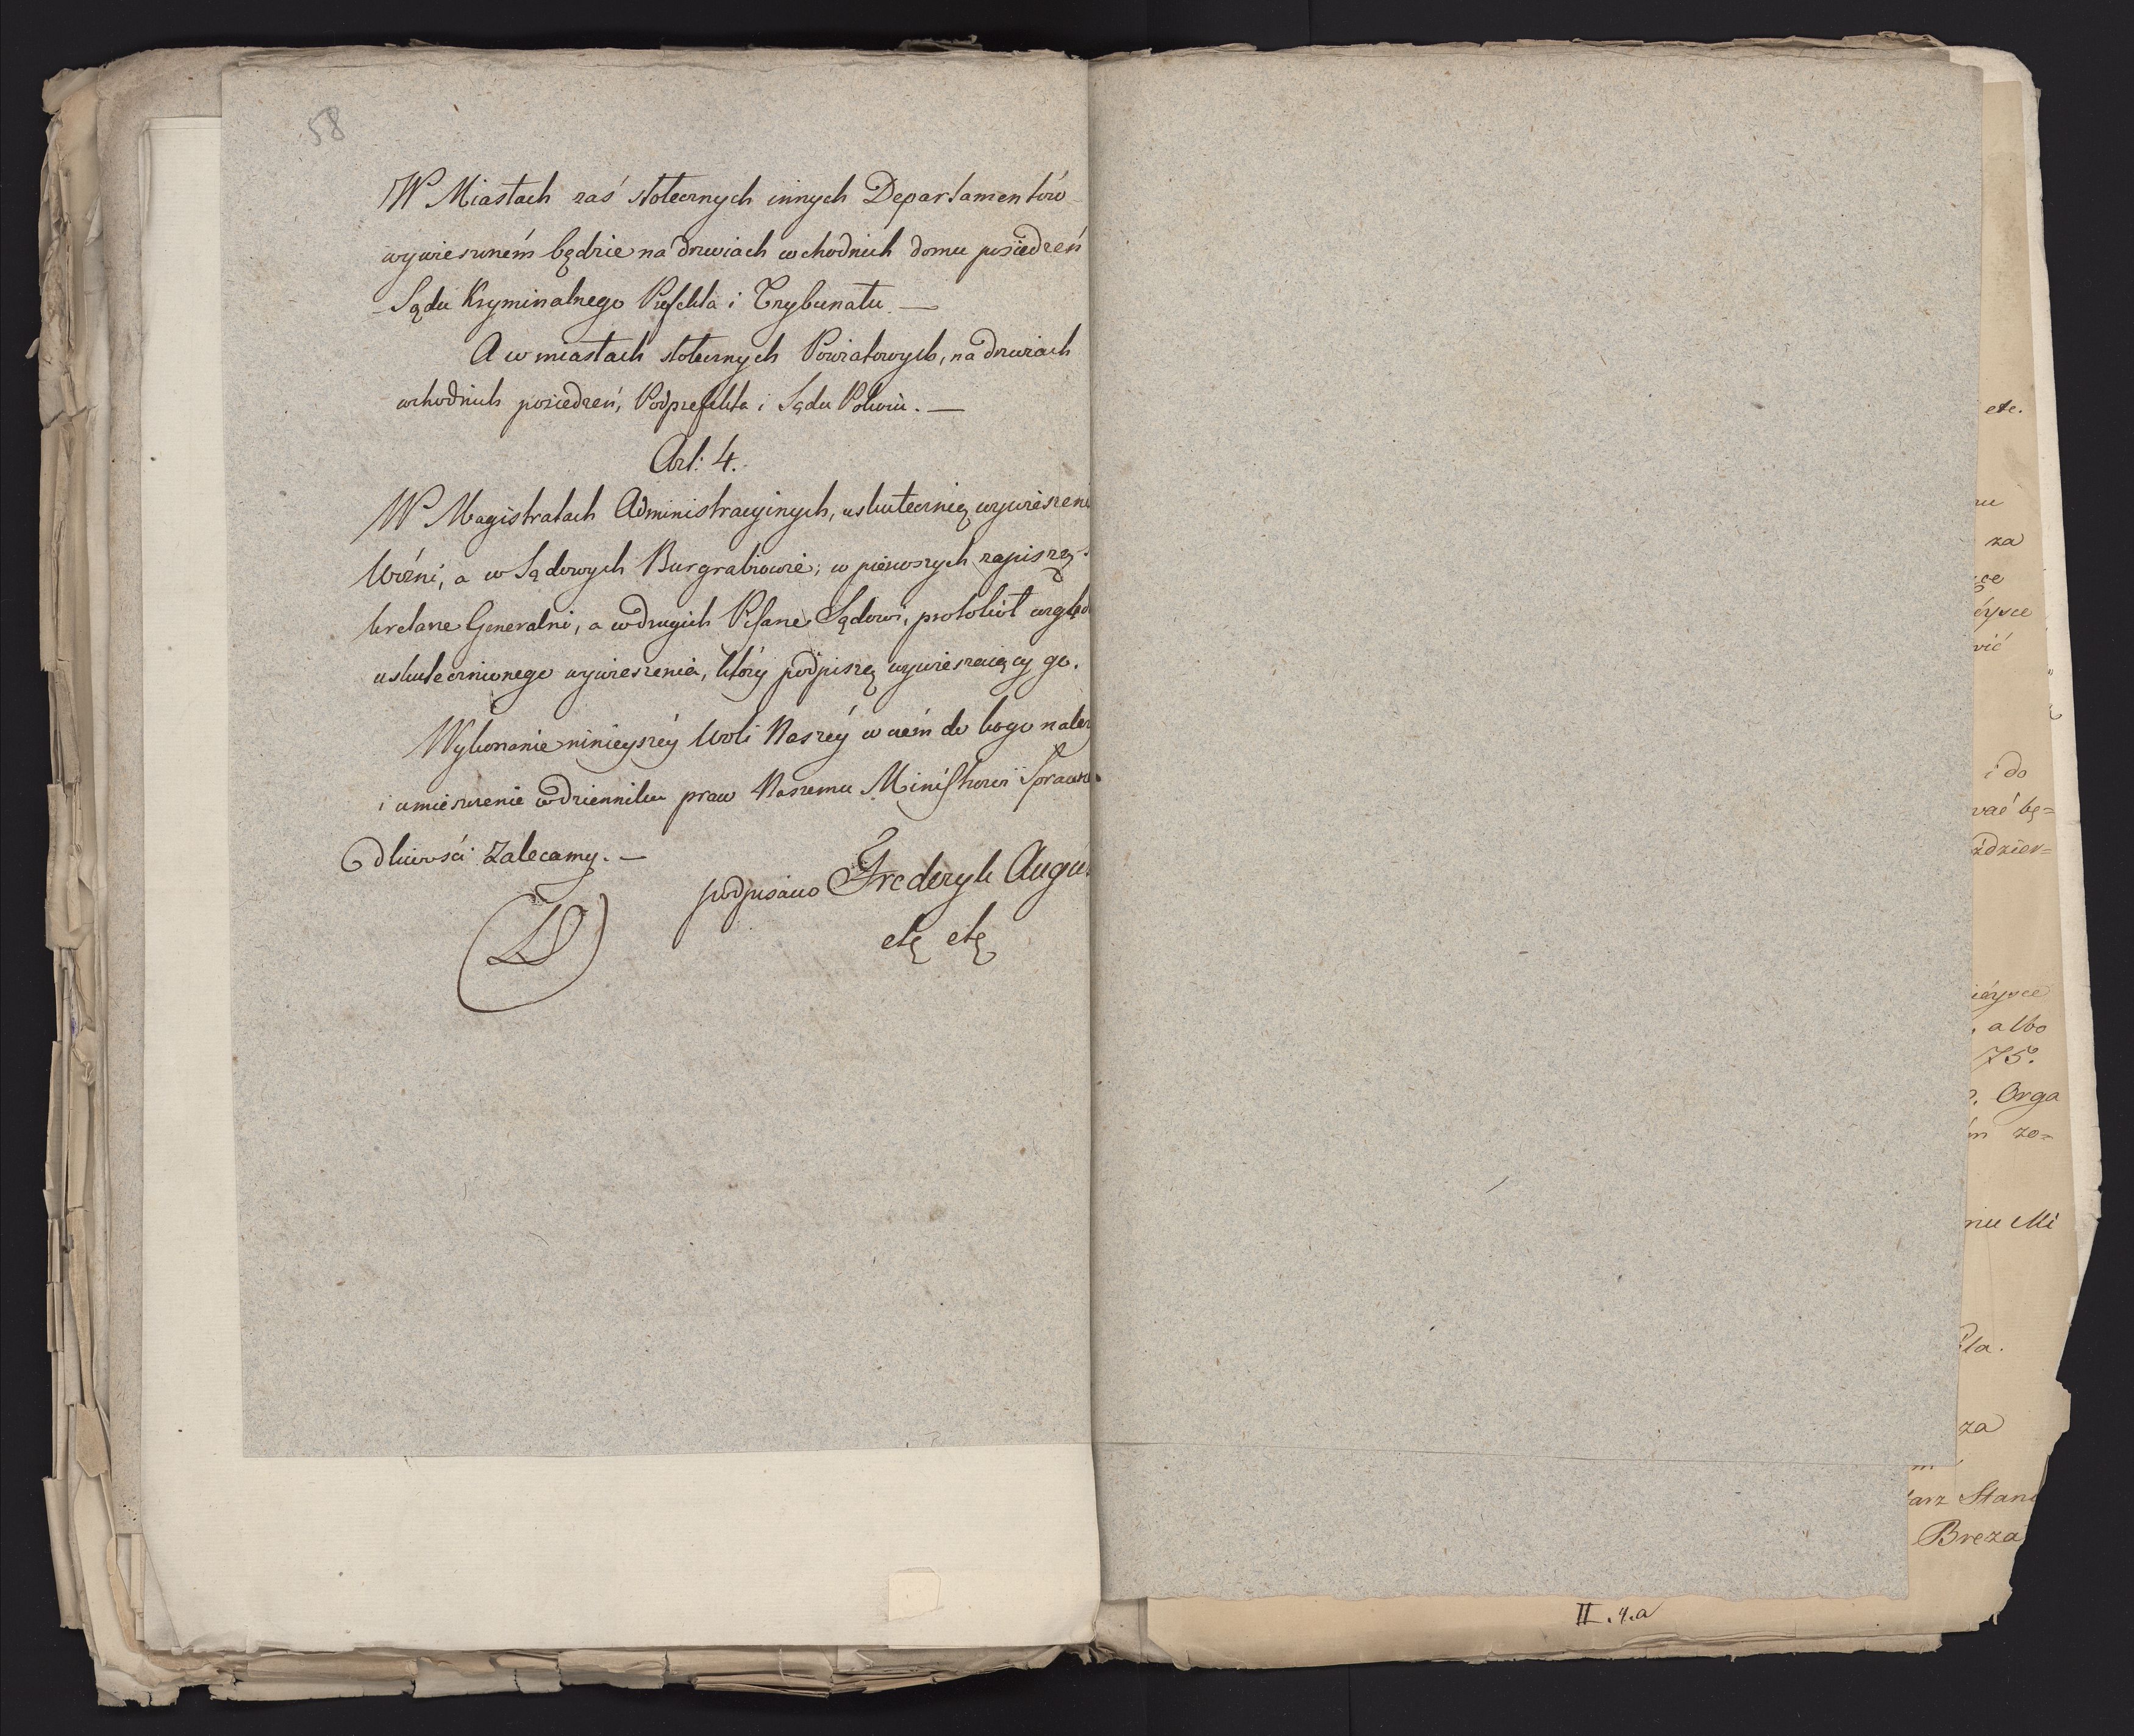 58
W Miastach zaś stołecznych innych Departamentów
wywieszoném będzie na drzwiach wchodnich domu posiedzeń
Sądu Kryminalnego Prefekta i Trybunału. —
A w miastach stołecznych Powiatowych, na drzwiach
wchodnich posiedzeń, Podprefekta i Sądu Pokoiu. —
Art: 4.
W Magistratach Administracyinych, uskutecznią wywieszeni
Woźni, a w Sądowych Burgrabiowie; w pierwszych zapiszą S
kretarze Generalni, a w drugich Pisarze Sądowi, protokół wzglę
uskutecznionego wywieszenia, który podpiszą wywieszaiący go.
Wykonanie ninieyszéy Woli Naszéy w czém do kogo należ
i umieszczenie w dzienniku praw Naszemu Ministrowi Sprawie
dliwości Zalecamy. —
podpisano Frederyk Augu
etc etc
(LS)
etc.
nu
za
ce
éysce
wić
i do
wać bę=
ździer=
iéysce
, albo
75.
. Orga
ém zo=
niu Mi
la.
za
m
tarz Stan
Breza
II.4.a